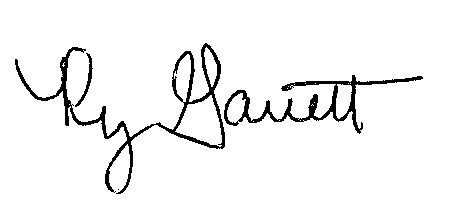 Ry Garrett